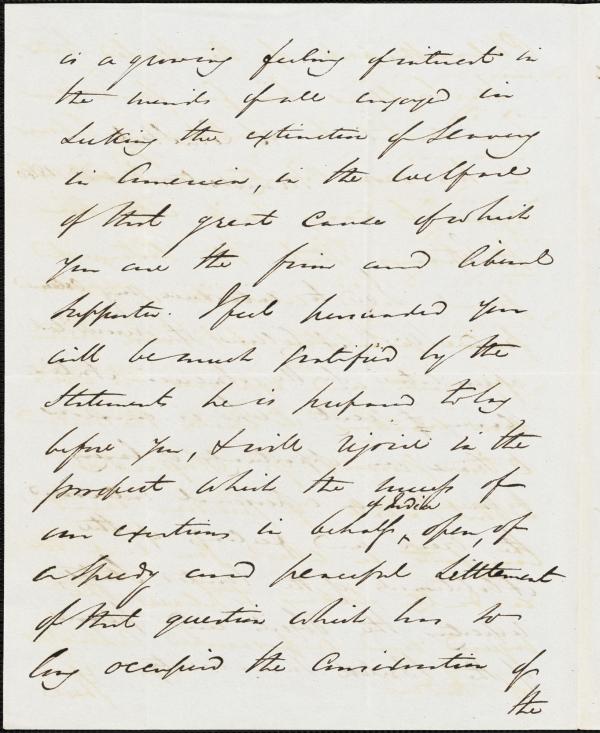 is a growing feeling of interest in
the minds of all engaged in
seeking the extinction of Slavery
in America, in the welfare
of that great cause of which
you are the firm and liberal
supporter. I feel persuaded you
will be much gratified by the
statements he is prepared to lay
before you, & will rejoice in the
prospect which the success of
our exertions in behalf ‸ of India open, of
a speedy and peaceful settlement
of that question which has so
long occupied the consideration of
the